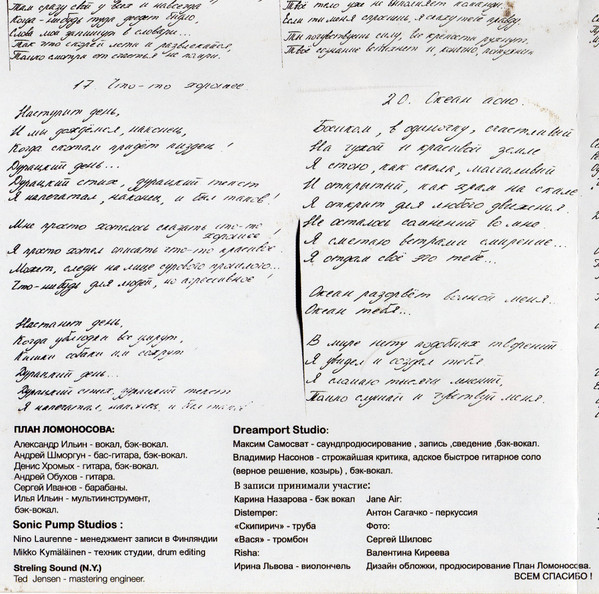 Там сразу свет у всех и навсегда
Когда-нибудь туда дойдёт
Слова мои запишут в словари...
Так что скорей лети и развивайся,
Только смотри от счастья не помри.
17. Что-то хорошее.
Наступит день,
И мы дождёмся, наконец,
Когда скотам придёт пиздец!
Дурацкий день...
Дурацкий стих, дурацкий текст
Я напечатал, наконец, и был таков!
Мне просто хотелось сказать что-то
хорошее!
Я просто хотел описать что-то красивое
Может, следы на лице сурового прошлого...
Что-нибудь для людей, но агрессивное!
Настанет день,
Когда ублюдки все умрут,
Кишки собаки им сожрут
Дурацкий день...
Дурацкий стих, дурацкий текст
Я напечатал, наконец, и был таков!
Твоё тело уже не выполняет команды.
Если ты меня спросишь, я скажу тебе правду.
Ты почувствуешь силу, все крепости рухнут.
Твоё сознание вспыхнет и, конечно,
20. Океан асно.
Босиком, в одиночку, счастливый
На чужой и красивой земле
Я стою, как скала, молчаливый
И открытый, как храм на скале
Я открыт для любого движенья.
Не осталось сомнений во мне.
Я сметаю ветрами смирение...
Я отдам своё это тебе...
Океан разорвёт волной меня...
Океан тебя...
В мире нету подобных творений
Я увидел и создал тебя
Я сломаю тысячи мнений,
Только слушай и чувствуй меня.
ПЛАН ЛОМОНОСОВА:
Александр Ильин - вокал, бэк-вокал.
Андрей Шморгун - бас-гитара, бэк-вокал.
Денис Хромых - гитара, бэк-вокал.
Андрей Обухов - гитара.
Сергей Иванов - барабаны.
Илья Ильин - мультиинструмент,
бэк-вокал.
Sonic Pump Studios :
Nino Laurenne - менеджмент записи в Финляндии
Mikko Kymäläinen - техник студии, drum editing
Streling Sound (N.Y.)
Ted Jensen - mastering engineer.
Dreamport Studio:
Максим Самосват - саундпродюсирование , запись ,сведение ,бэк-вокал.
Владимир Насонов - строжайшая критика, адское быстрое гитарное соло
(верное решение, козырь) , бэк-вокал.
В записи принимали участие:
Карина Назарова - бэк вокал Jane Air:
Distemper: Антон Сагачко - перкуссия
«Скипирич» - труба Фото:
«Вася» - тромбон Сергей Шиловс
Risha: Валентина Киреева
Ирина Львова - виолончель Дизайн обложки, продюсирование План Ломоносова.
ВСЕМ СПАСИБО !